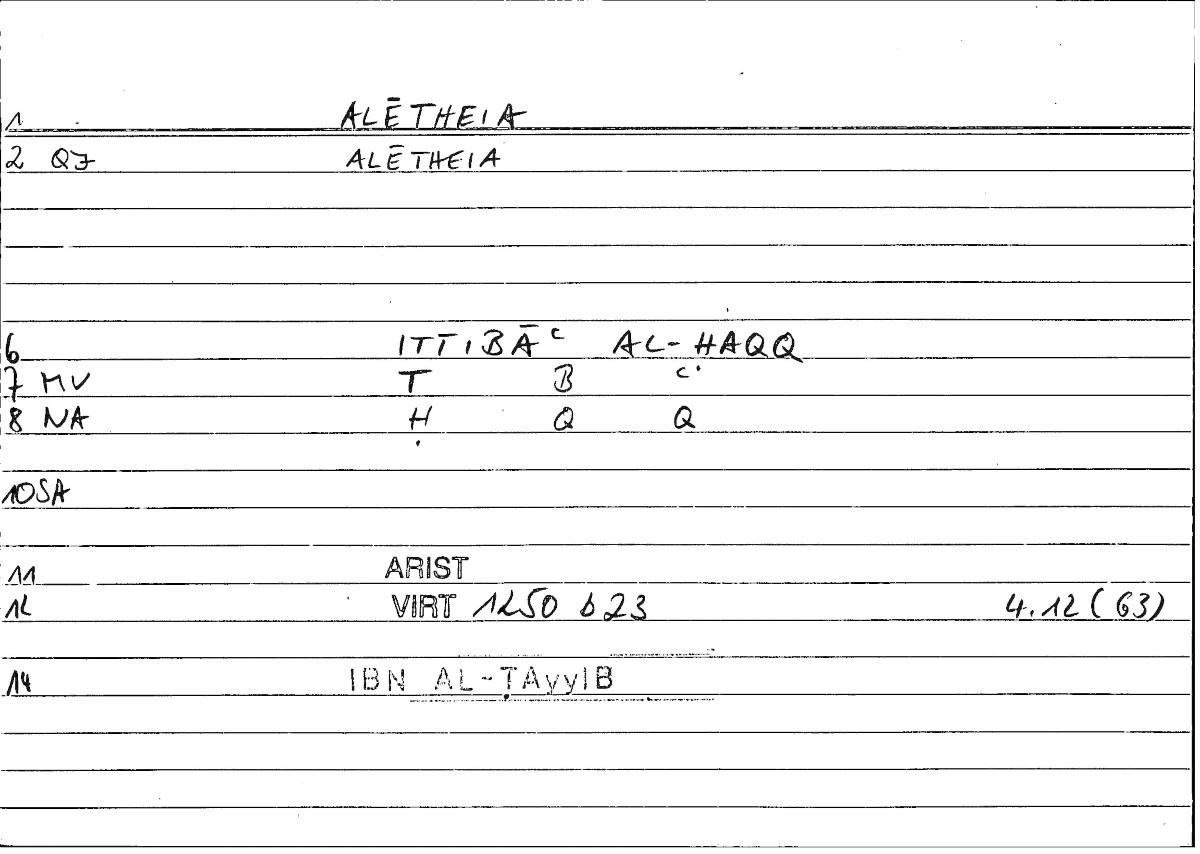 1 ALĒTHEIA
2 QJ ALĒTHEIA
6 ITTIBĀʿ AL-ḤAQQ
7 MV T B ʿ
8 NA Ḥ Q Q
10 SA
11 ARIST
12 VIRT 1250 b 23 4.12 (63)
14 IBN AL-ṬAyyIB